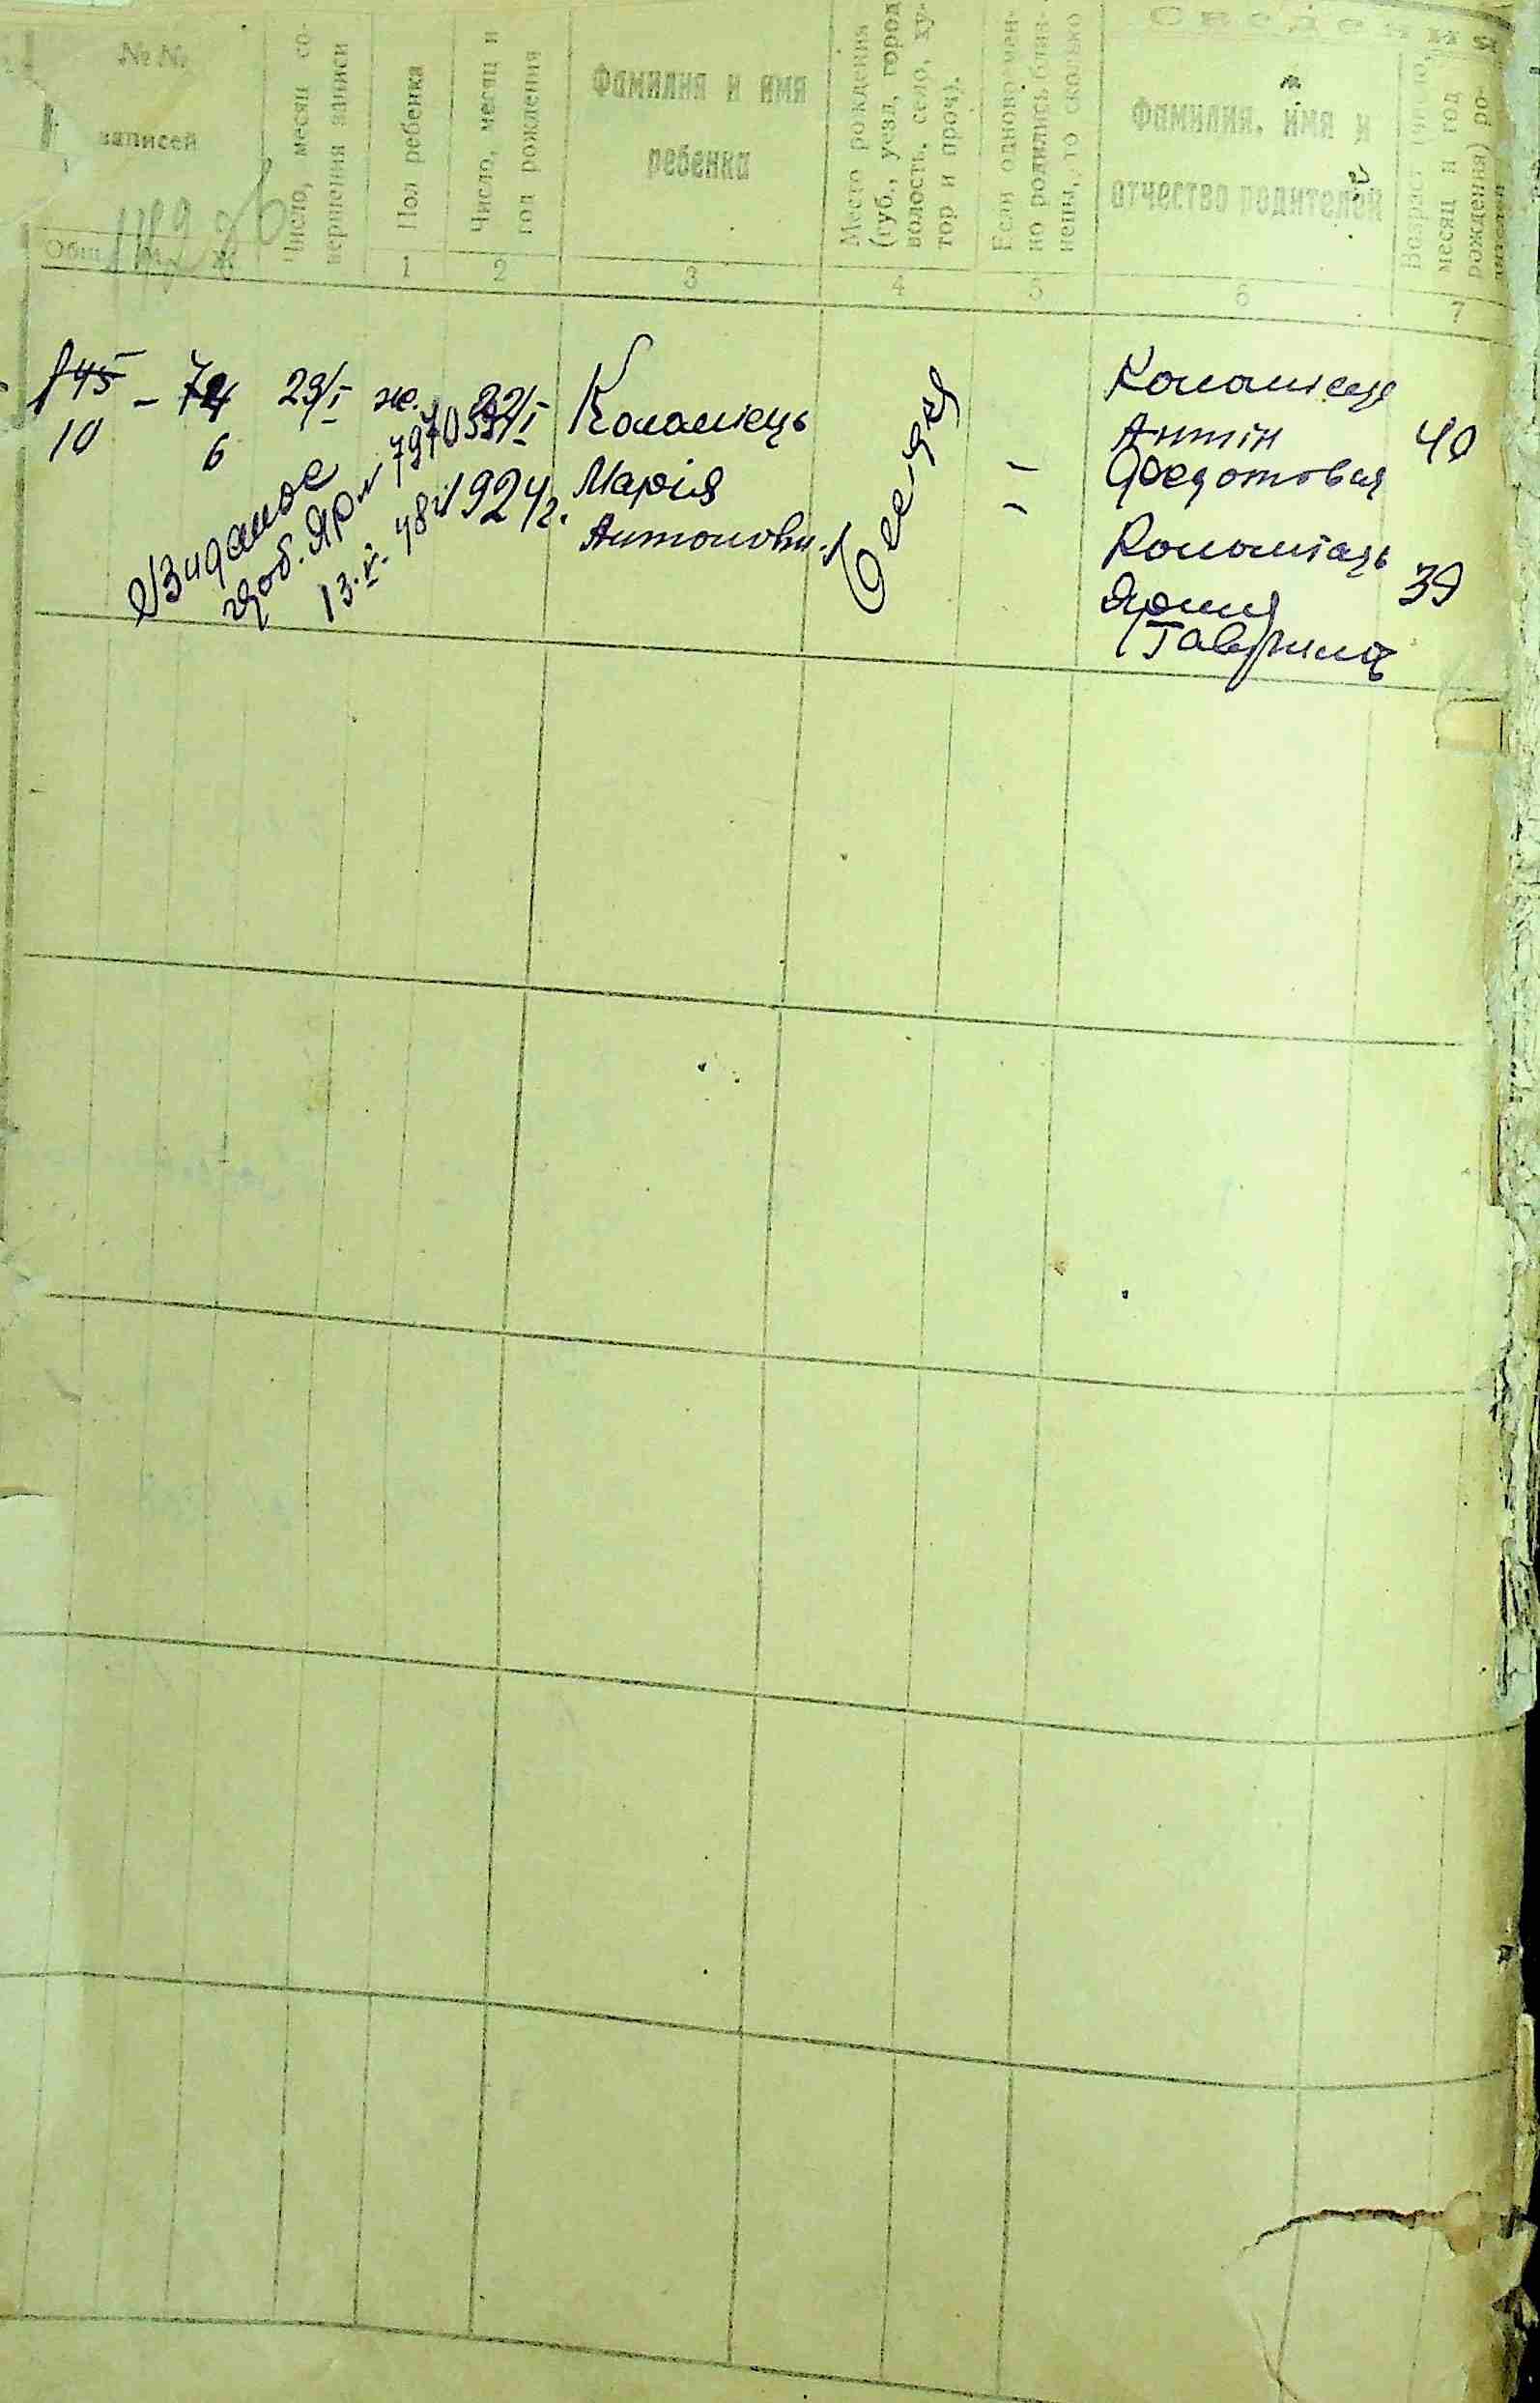 Сведения
№ №
записей
Общ. м ж
Число, месяц со-
вершения записи
Пол ребенка
Число, месяц и
год рождения
Фамилия и имя
ребенка
Место рождения
(губ., уезд, город
волость, село, ху-
тор и проч).
Если одновремен-
но родились близ-
нецы, то сколько
Фамилия, имя и
отчество родителей
Возраст (число,
месяц и год
рождения) ро-
дителей
1 2 3 4 5 6 7
145 - 74 23/I ж. 22/I
10 6
1924 г.
Коломієць
Марія
Антоновн.
Коломієць
Антін
Федотовия
40
Коломієць
39
Гаврилив
Видане
13.V.48